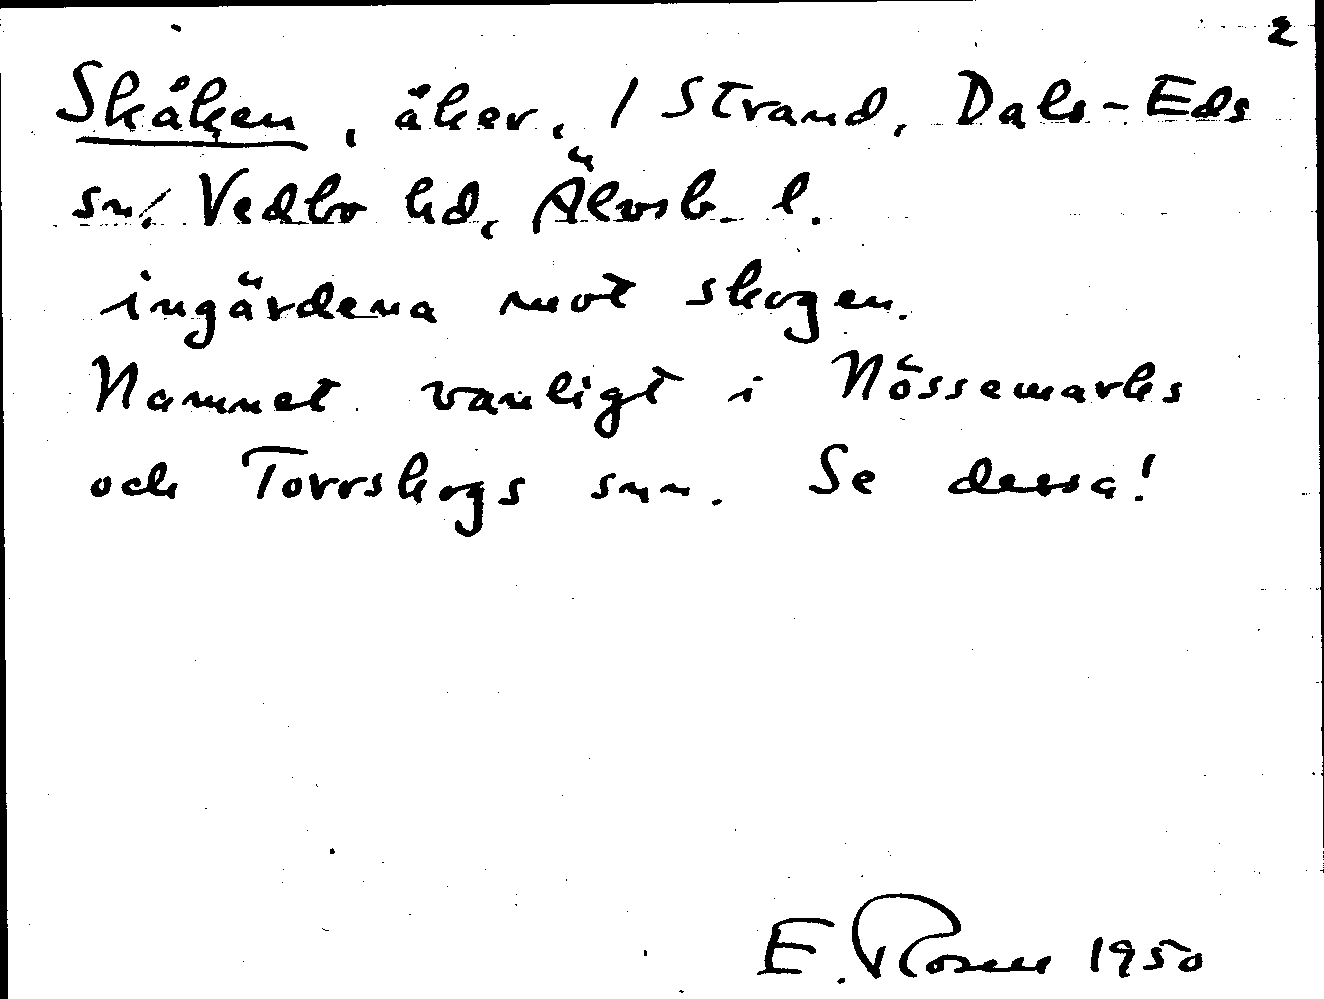 2
Skåken, åker, / Strand, Dals-Eds
sn, Vedbo hd, Älvsb. l.
ingärdena mot skogen.
Namnet vanligt i Nössemarks
och Torrskogs snn. Se dessa!
E. Rosen 1950